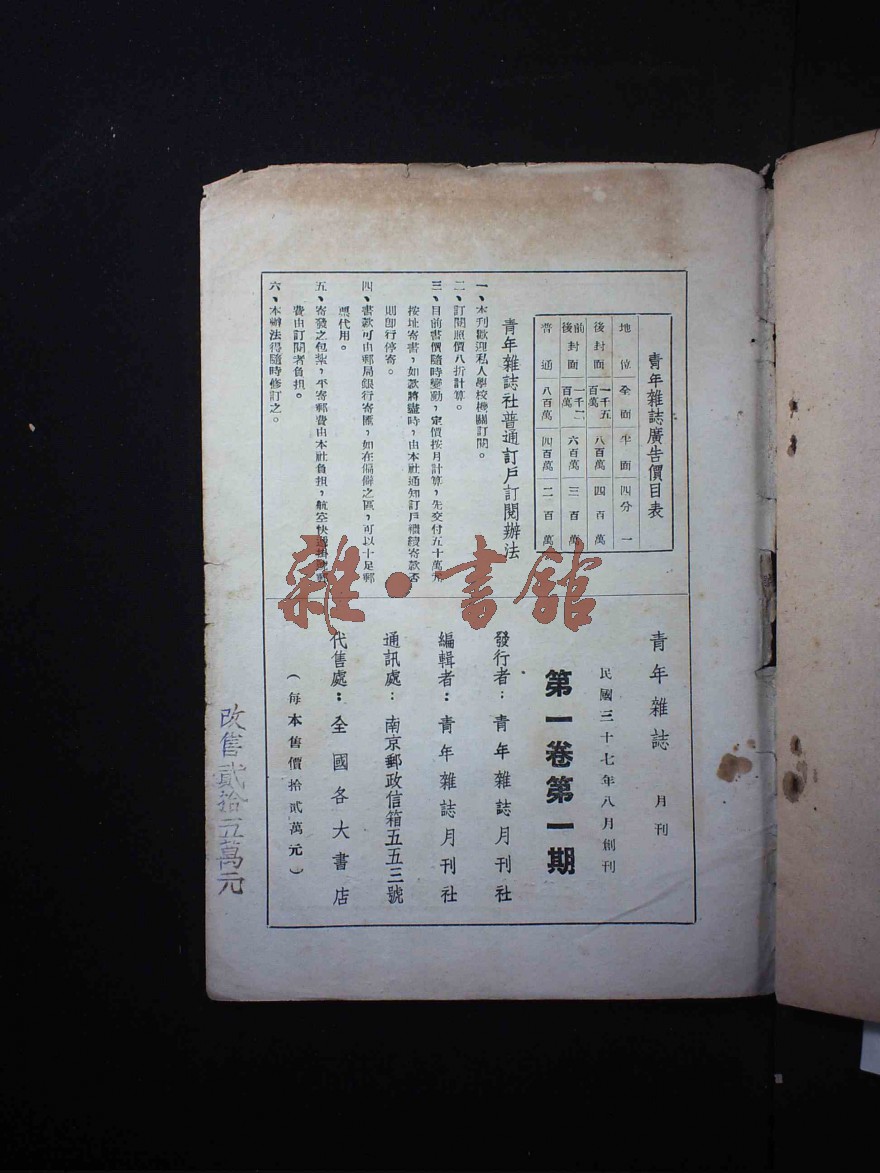 青年雜誌廣告價目表
地位 全面 半面 四分一
後封面 一千五百萬 八百萬 四百萬
前後封面 一千二百萬 六百萬 三百萬
普通 八百萬 四百萬 二百萬
青年雜誌社普通訂戶訂閱辦法
一、本刊歡迎私人學校機關訂閱。
二、訂閱照價八折計算。
三、目前書價隨時變動，定價按月計算，先交付五十萬元
按址寄書，如款將盡時，由本社通知訂戶續寄款否
則即行停寄。
四、書款可由郵局銀行寄匯，如在偏僻之區，可以十足郵
票代用。
五、寄發之包紮，平寄郵費由本社負担，航空快遞掛號郵
費由訂閱者負担。
六、本辦法得隨時修訂之。
青年雜誌 月刊
民國三十七年八月創刊
第一卷第一期
發行者：青年雜誌月刊社
編輯者：青年雜誌月刊社
通訊處：南京郵政信箱五五三號
代售處：全國各大書店
（每本售價拾貳萬元）
改售貳拾五萬元
雜·書館